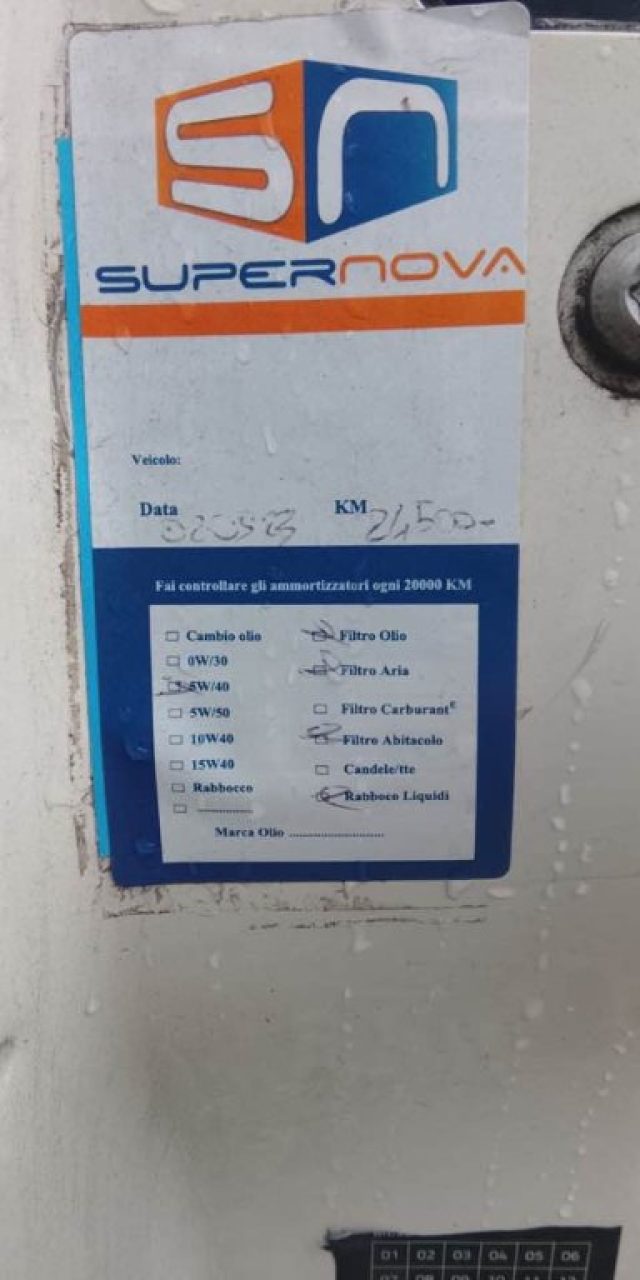 sn
SUPERNOVA
Veicolo:
Data KM 24500
Fai controllare gli ammortizzatori ogni 20000 KM
Cambio olio
0W/30
5W/40
5W/50
10W40
15W40
Rabbocco
..............
Filtro Olio
Filtro Aria
Filtro Carburante
Filtro Abitacolo
Candele/tte
Rabboco Liquidi
Marca Olio .........................
01 02 03 04 05 06